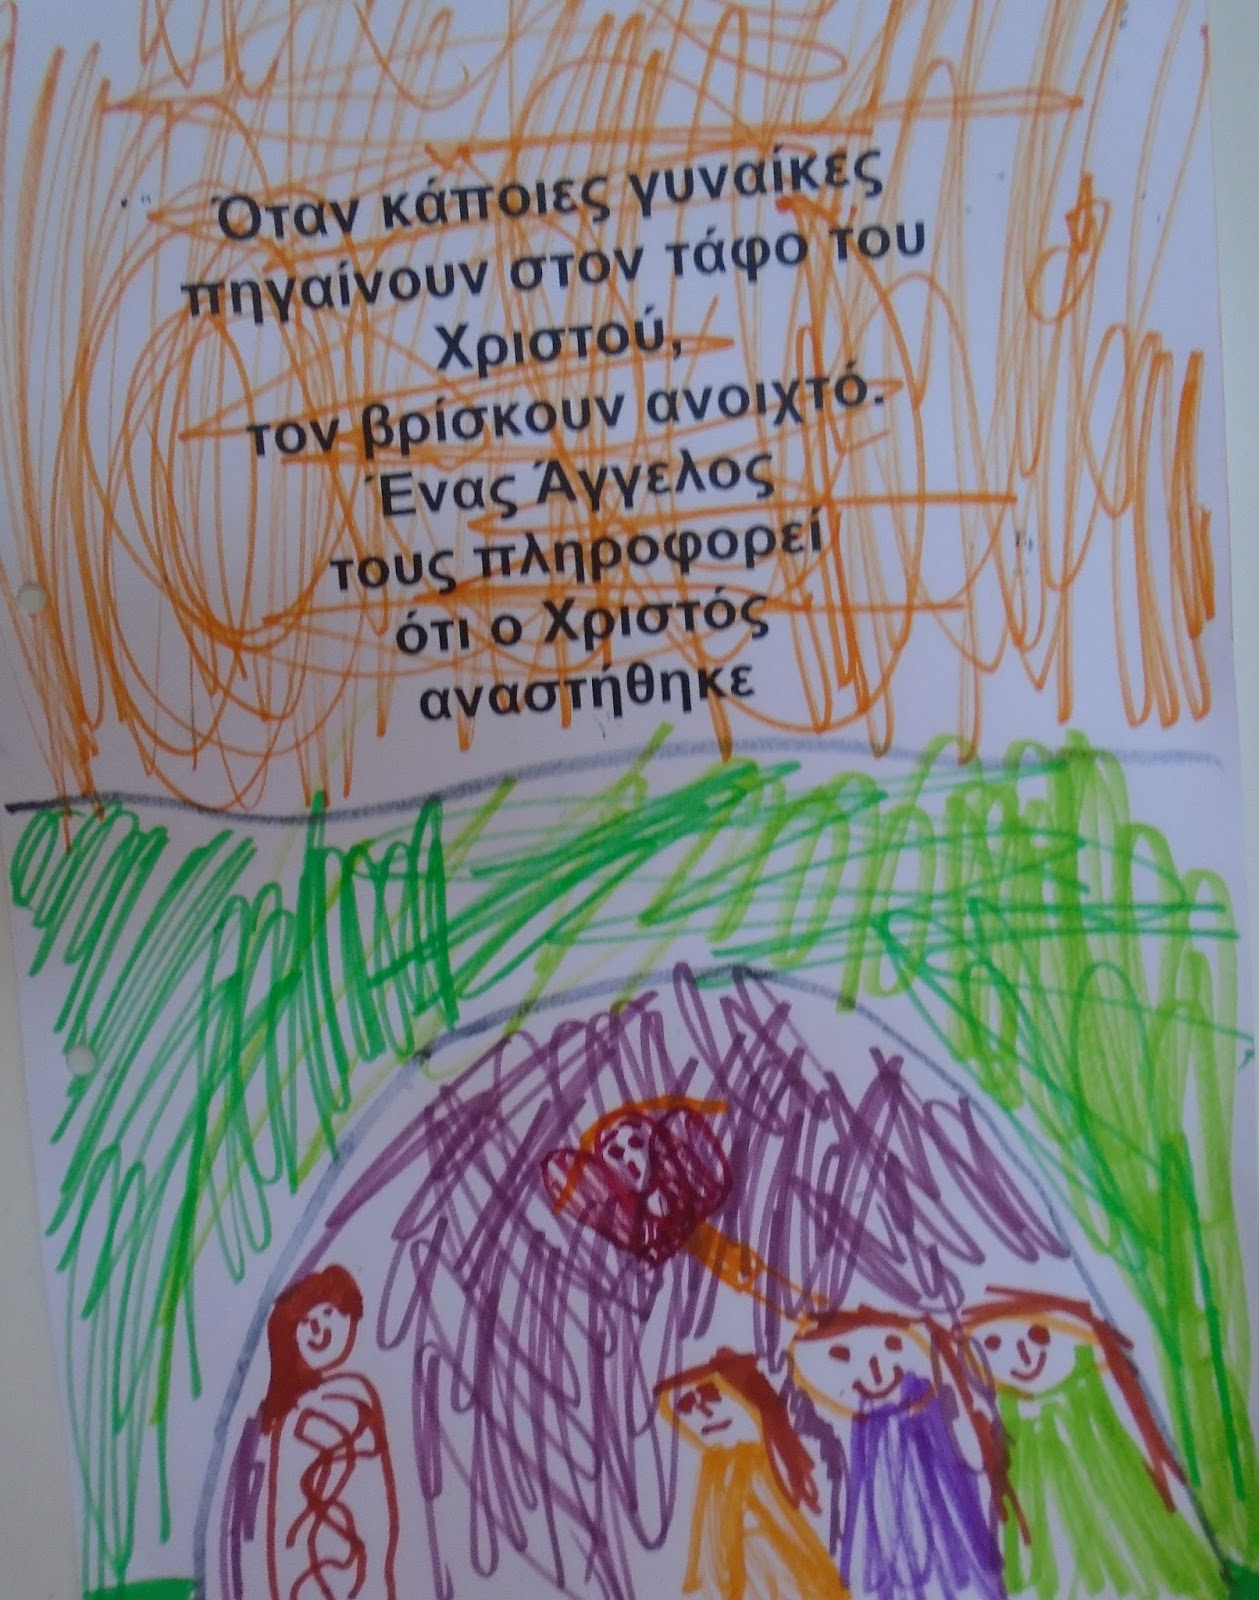 Όταν κάποιες γυναίκες
πηγαίνουν στον τάφο του
Χριστού,
τον βρίσκουν ανοιχτό.
Ένας Άγγελος
τους πληροφορεί
ότι ο Χριστός
αναστήθηκε